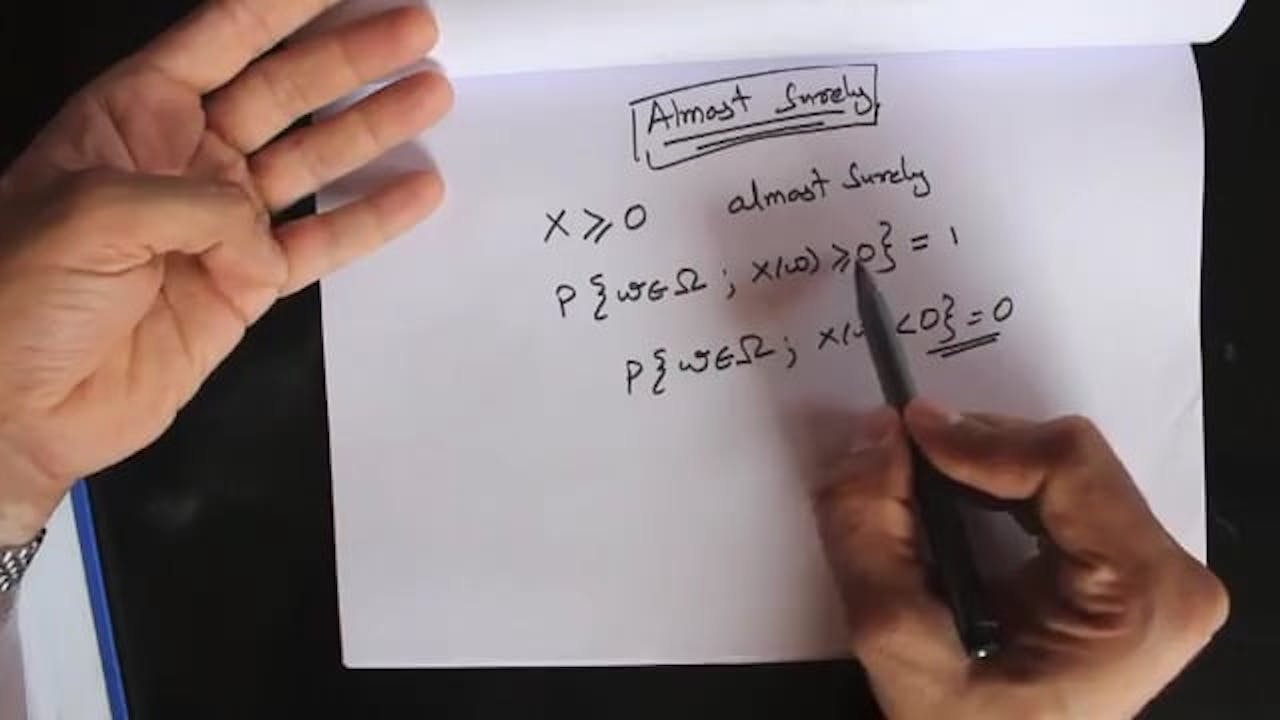 Almost Surely
X ⩾ 0 almost surely
P{ω∈Ω; X(ω) ⩾0} = 1
P{ω∈Ω; X(ω) <0} = 0